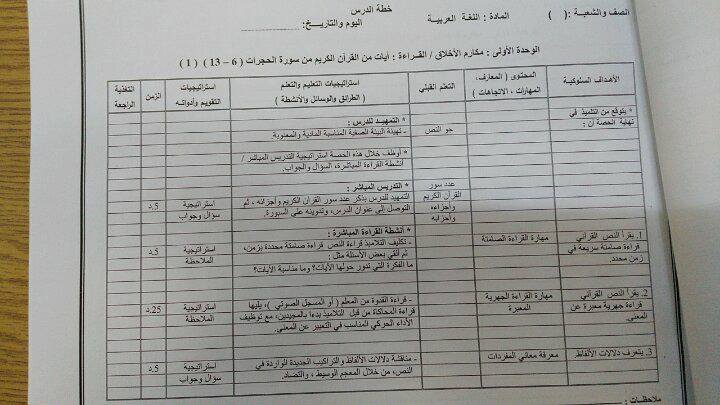 خطة الدرس
الصف والشعبة :( ) المادة : اللغة العربية اليوم والتاريخ:
الوحدة الأولى : مكارم الأخلاق / القراءة : آيات من القرآن الكريم من سورة الحجرات ( 6 – 13 ) ( 1 )
الأهداف السلوكية
المحتوى ( المعارف،
المهارات ، الاتجاهات )
التعلم القبلي
استراتيجيات التعليم والتعلم
( الطرائق والوسائل والأنشطة )
استراتيجيات
التقويم وأدواته
الزمن
التغذية
الراجعة
* يتوقع من التلميذ في
نهاية الحصة أن :
جو النص
* التمهيد للدرس :
- تهيئة البيئة الصفية المناسبة المادية والمعنوية.
* أوظف خلال هذه الحصة استراتيجية التدريس المباشر /
أنشطة القراءة المباشرة، السؤال والجواب.
عدد سور
القرآن الكريم
وأجزاءه
وأحزابه
* التدريس المباشر :
التمهيد للدرس بذكر عدد سور القرآن الكريم وأجزائه ، ثم
التوصل إلى عنوان الدرس، وتدوينه على السبورة.
استراتيجية
سؤال وجواب
5.د
1. يقرأ النص القرآني
قراءة صامتة سريعة في
زمن محدد.
مهارة القراءة الصامتة
* أنشطة القراءة المباشرة :
- تكليف التلاميذ قراءة النص قراءة صامتة محددة بزمن،
ثم ألقي بعض الأسئلة مثل :
ما الفكرة التي تدور حولها الآيات؟ وما مناسبة الآيات؟
استراتيجية
الملاحظة
5.د
2. يقرأ النص القرآني
قراءة جهرية معبرة عن
المعنى.
مهارة القراءة الجهرية
المعبرة
- قراءة القدوة من المعلم ( أو المسجل الصوتي )، يليها
قراءة المحاكاة من قبل التلاميذ بدءا بالمجيدين، مع توظيف
الأداء الحركي المناسب في التعبير عن المعنى.
استراتيجية
الملاحظة
25.د
3. يتعرف دلالات الألفاظ.
معرفة معاني المفردات
- مناقشة دلالات الألفاظ والتراكيب الجديدة الواردة في
النص، من خلال المعجم الوسيط ، والتضاد.
استراتيجية
سؤال وجواب
5.د
ملاحظات :